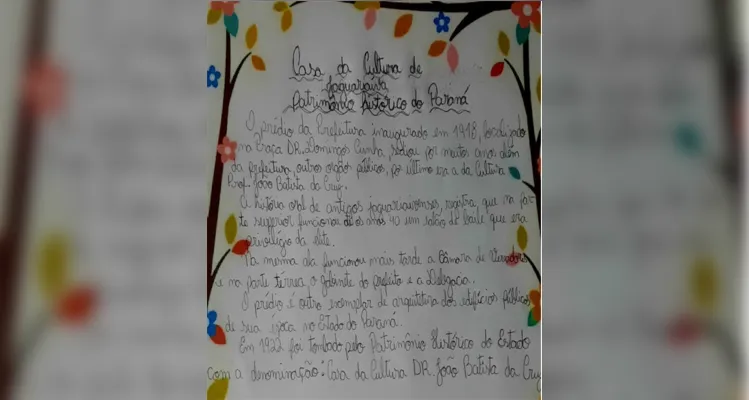 Casa da Cultura de
Jaguaraíva
Patrimônio histórico do Paraná
O prédio da Prefeitura inaugurado em 1918, localizado
na Praça DR. Domingos Cunha, sediou por muitos anos além
da prefeitura, outros orgãos públicos, por último era a da Cultura
Prof. João Batista da Cruz.
A história oral de antigos jaguariaivenses, registra, que na par
te superior funcionou até os anos 40 um salão de baile que era
privilégio da elite.
Na mesma ala funcionou mais tarde a Câmara de Vereadores
e na parte térrea, o gabinete do prefeito e a Delegacia.
O prédio é outro exemplar de arquitetura dos edifícios públicos
de sua época no Estado do Paraná.
Em 1922 foi tombado pelo Patrimônio Histórico do Estado
com a denominação: Casa da Cultura DR. João Batista da Cruz